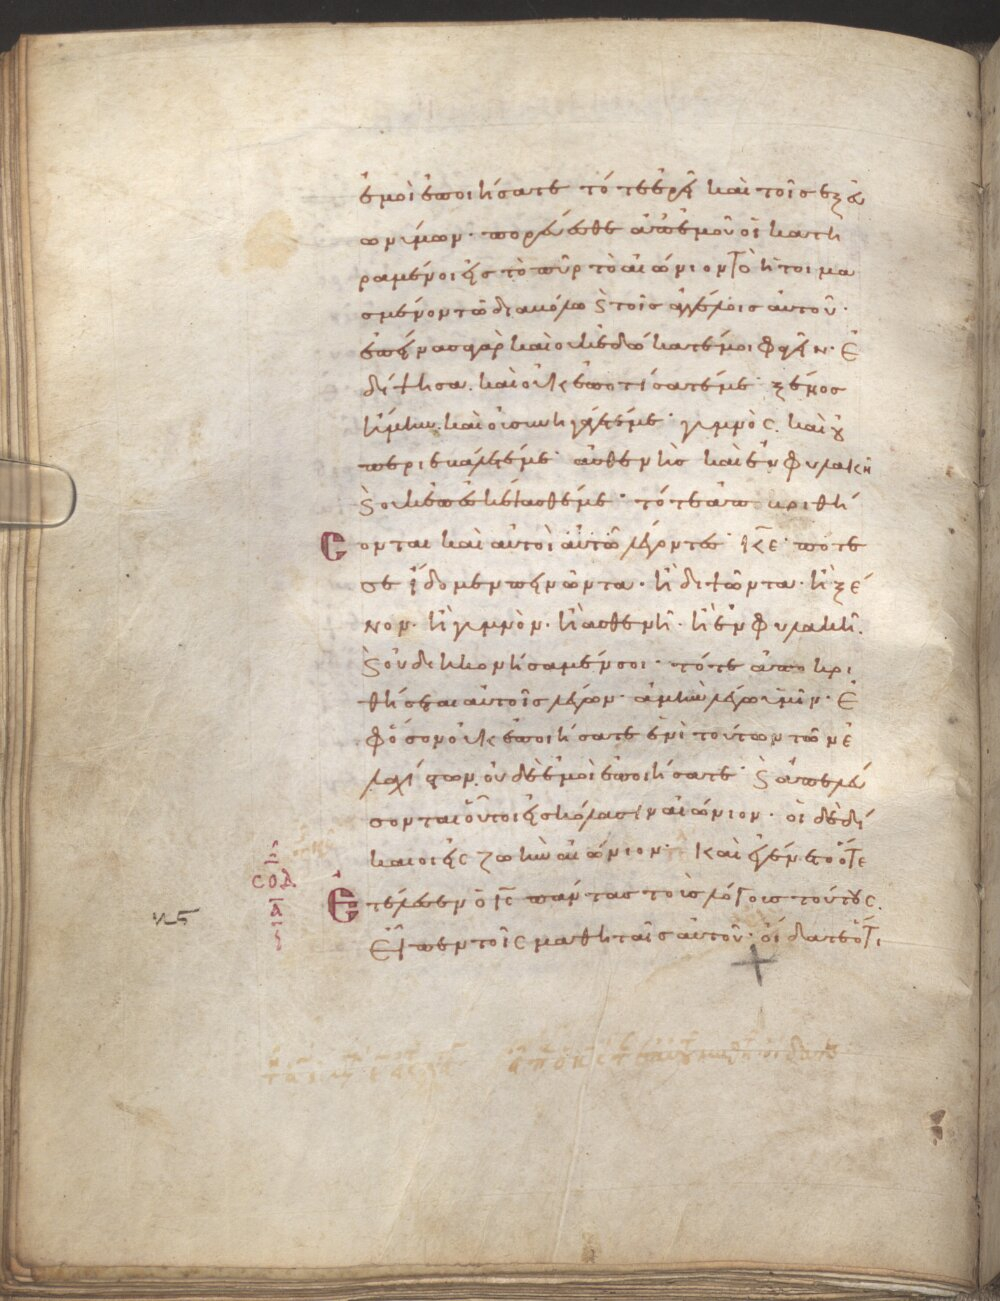 ἐμοὶ ἐποιήσατε τότε ἐρεῖ καὶ τοῖς ἐξ εὐ
ωνύμων· πορεύεσθε ἀπ' ἐμοῦ οἱ κατη
ραμένοι εἰς τὸ πῦρ τὸ αἰώνιον τὸ ἡτοιμα
σμένον τῶ διαβόλω ϗ τοῖς ἀγγέλοις αὐτοῦ·
ἐπείνασα γὰρ καὶ οὐκ ἐδώκατέ μοι φαγεῖν· ἐ
δίψησα. καὶ οὐκ ἐποτίσατέ με· ξένος
ἤμην. καὶ οὐ συνηγάγετέ με· γυμνὸς. καὶ οὐ
περιεβάλετέ με· ἀσθενὴς καὶ ἐν φυλακῆ
ϗ οὐκ ἐπεσκέψασθέ με· τότε ἀποκριθή
σονται καὶ αὐτοὶ αὐτῶ λέγοντες· κε̅· πότε
σὲ ἴδομεν πεινῶντα· ἢ διψῶντα· ἢ ξέ
νον· ἢ γυμνὸν· ἢ ἀσθενῆ· ἢ ἐν φυλακῆ.
ϗ οὐ διηκονήσαμέν σοι· τότε ἀποκρι
θήσεται αὐτοῖς λέγων· ἀμὴν λέγω ὑμῖν· ἐ
φόσον οὐκ ἐποιήσατε ἑνὶ τούτων τῶν ἐ
λαχίστων. οὐδὲ ἐμοὶ ἐποιήσατε· ϗ ἀπελεύ
σονται οὗτοι εἰς κόλασιν αἰώνιον· οἱ δὲ δί
καιοι εἰς ζωὴν αἰώνιον· Καὶ ἐγένετο ὅτε
ἐτέλεσεν ὁ ις̅ πάντας τοὺς λόγους τούτους.
εἶπεν τοῖς μαθηταῖς αὐτοῦ· οἴδατε ὅτι
+